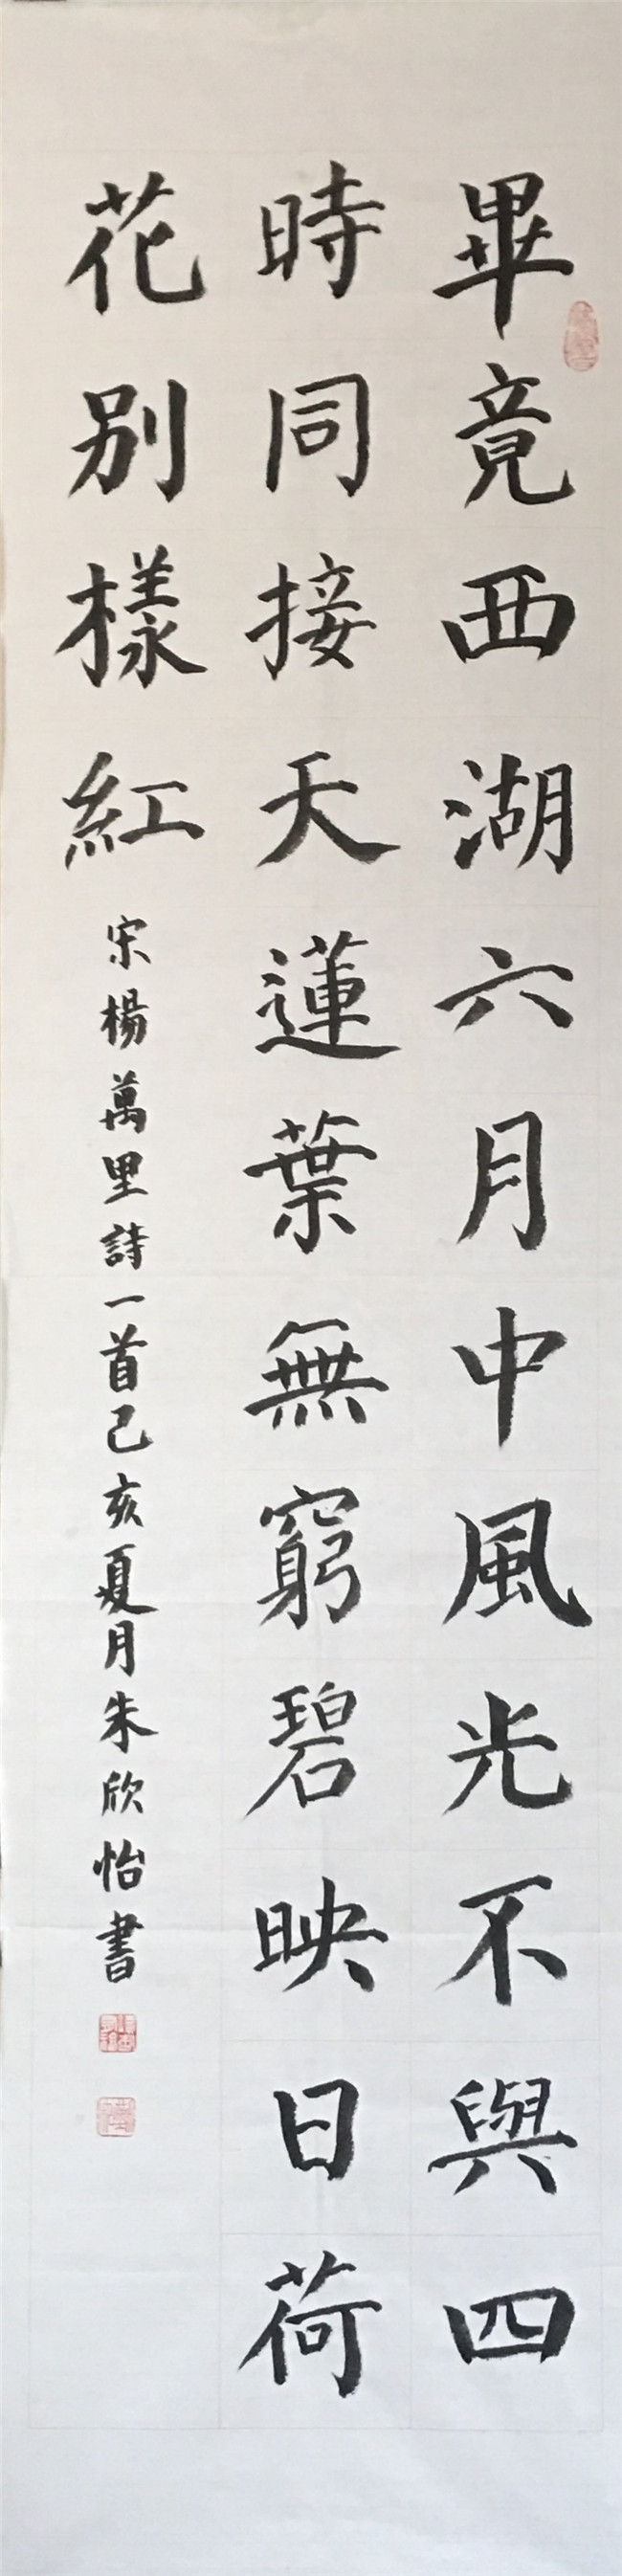 畢竟西湖六月中風光不與四
時同接天蓮葉無窮碧映日荷
花別樣紅
宋楊萬里詩一首己亥夏月朱欣怡書